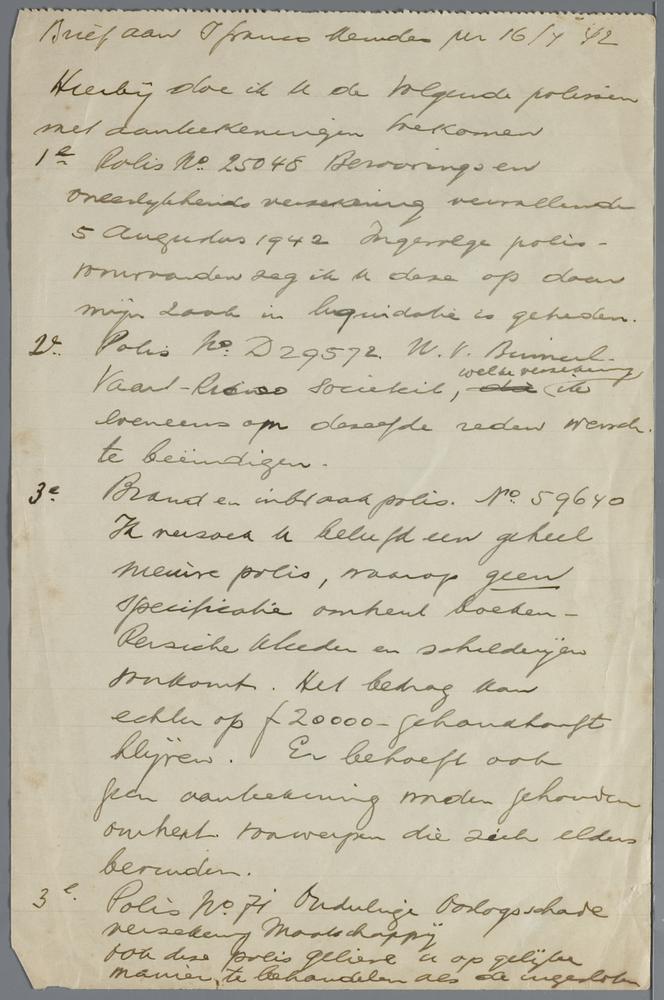 Brief aan J franco Mendes per 16/4 '42
Hierbij doe ik U de volgende polissen
met aanteekeningen toekomen
1e Polis No. 25048 Berovings en
oneerlijkheids verzekering vervallende
5 Augustus 1942 Ingevolge polis-
voorwaarden zeg ik U deze op daar
mijn zaak in liquidatie is getreden.
2e. Polis No. D 29572 N.V. Binnenl.
welke verzekering
Vaart-Risico Societeit, ik
eveneens om dezelfde reden wensch
te beëindigen.
3e Brand en inbraak polis. No 59640
Ik verzoek U beleefd een geheel
nieuwe polis, waarop geen
specificatie omtrent boeken-
Perzische kleeden en schilderijen
voorkomt. Het bedrag kan
echter op f 20000- gehandhaaft
blijven. Er behoeft ook
geen aanteekening worden gehouden
omtrent voorwerpen die zich elders
bevinden.
3e. Polis No. 71 Onderlinge Oorlogsschade
verzekering Maatschappij
Ook deze polis gelieve U op gelijke
manier, te behandelen als de ingesloten